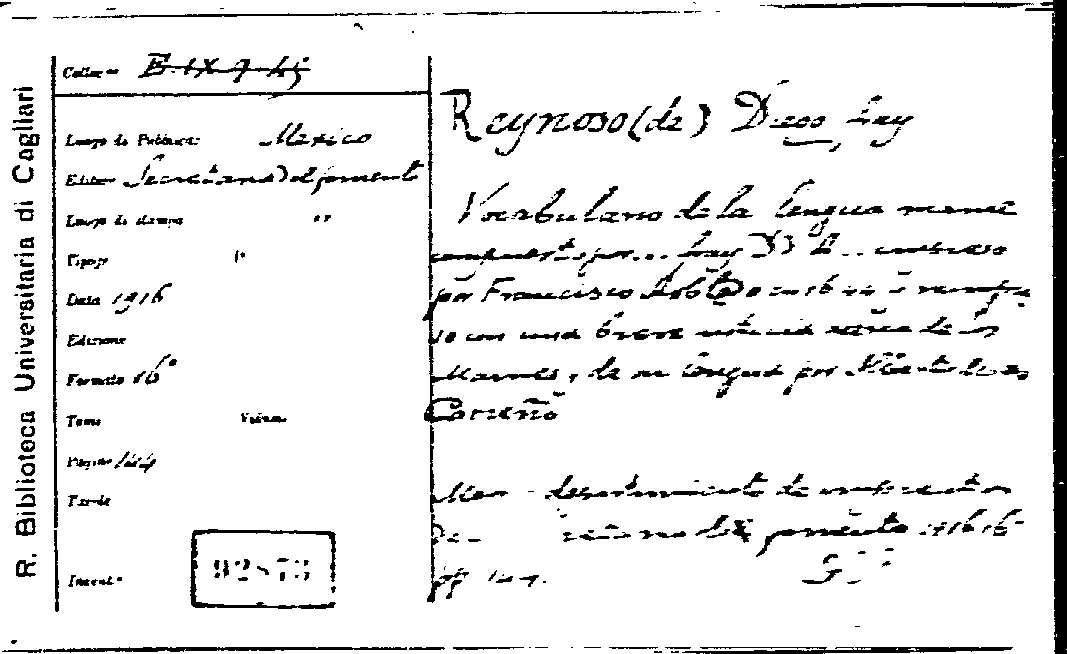 R. Biblioteca Universitaria di Cagliari
Colloc.ne B.IX.9.45
Luogo di Pubblicaz. Mexico
Editore Secretaria del fomento
Luogo di stampa "
Tipogr. "
Data 1916
Edizione
Formato 16°
Tomo Volume
Pagine 144
Tavole
Invent.
Reynoso (de) Diego, fray
Vocabulario de la lengua mame
compuesto por... fray D. d. R... impreso
por Francisco Robledo en 1644 y
con una breve noticia acerca de los
Mames, y de su lengua por Alberto M.
Carreño
Mex departamento de
de fomento 1916 16°
pp 144.